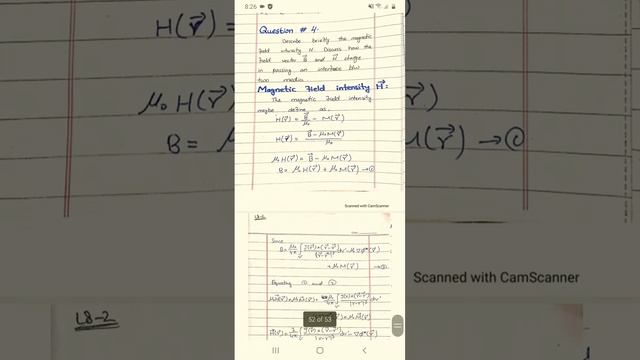 8:26
Question # 4.
Describe briefly the magnetic
field intensity H. Discuss how the
field vector B⃗ and H⃗ change
in passing an interface b/w
two media.
Magnetic Field intensity H⃗:
The magnetic field intensity
maybe define as,
H(r⃗) = B⃗/μ₀ - M(r⃗)
H(r⃗) = B⃗ - μ₀M(r⃗)/μ₀
μ₀H(r⃗) = B⃗ - μ₀M(r⃗)
B = μ₀H(r⃗) + μ₀M(r⃗) → ①
Scanned with CamScanner
L8-2
Since
+ μ₀M(r⃗) → ②
Equating ① and ②
52 of 53
H(r⃗)
μ₀H(r⃗)
B = μ
M(r⃗) → ①
Scanned with CamScanner
L8-2